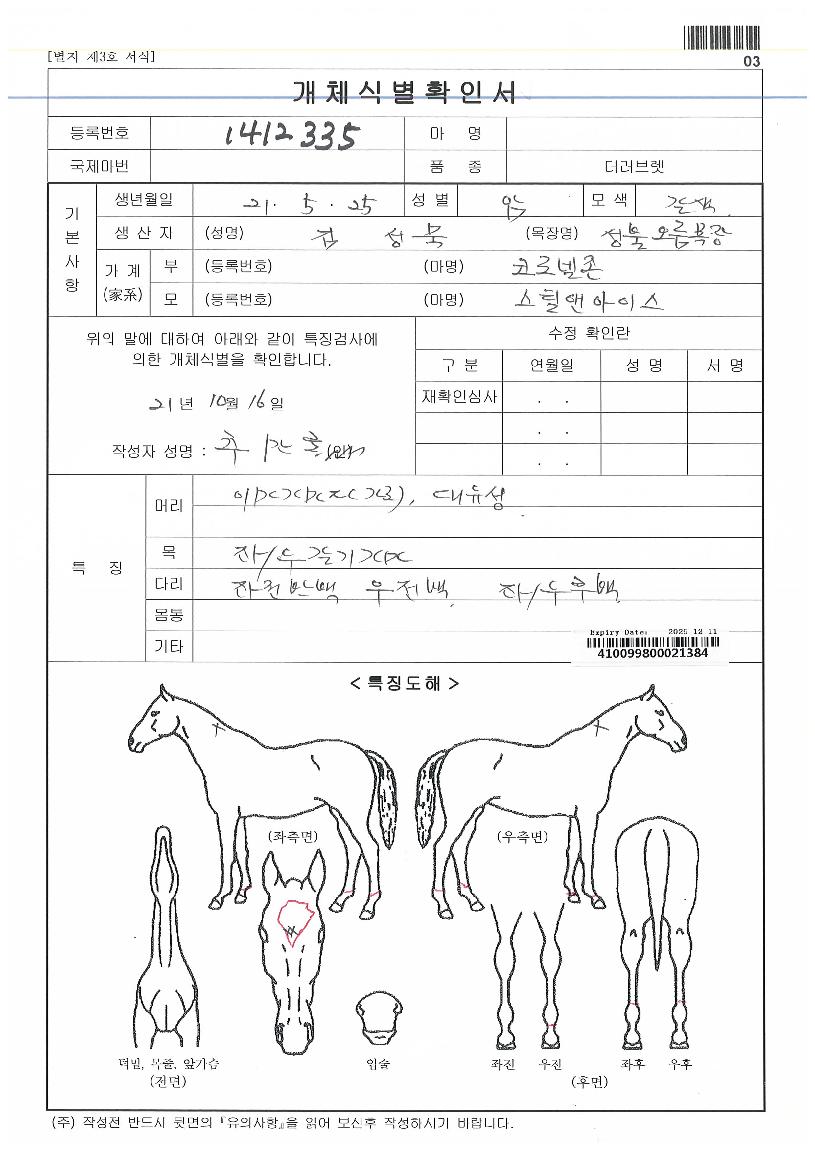 03
[별지 제3호 서식]
개체식별확인서
등록번호 1412335 마 명
국제마번 품 종 더러브렛
기본사항
생년월일 21. 5. 25 성 별 암 모 색 갈색
생 산 자 (성명) 김 성 목 (목장명) 성불오름목장
가 계 (家系) 부 (등록번호) (마명) 코로넬존
모 (등록번호) (마명) 스틸앤아이스
위의 말에 대하여 아래와 같이 특징검사에
의한 개체식별을 확인합니다.
21년 10월 16일
작성자 성명 :
수정 확인란
구 분 연월일 성 명 서 명
재확인심사 . .
. .
. .
특 징
머리 대유성
목 좌/우
다리 좌전반백 우전백 좌/우후백
몸통
기타
Expiry Date: 2025 12 11
410099800021384
< 특징도해 >
(좌측면) (우측면)
턱밑, 목줄, 앞가슴 입술 좌전 우전 좌후 우후
(전면) (후면)
(주) 작성전 반드시 뒷면의 『유의사항』을 읽어 보신후 작성하시기 바랍니다.